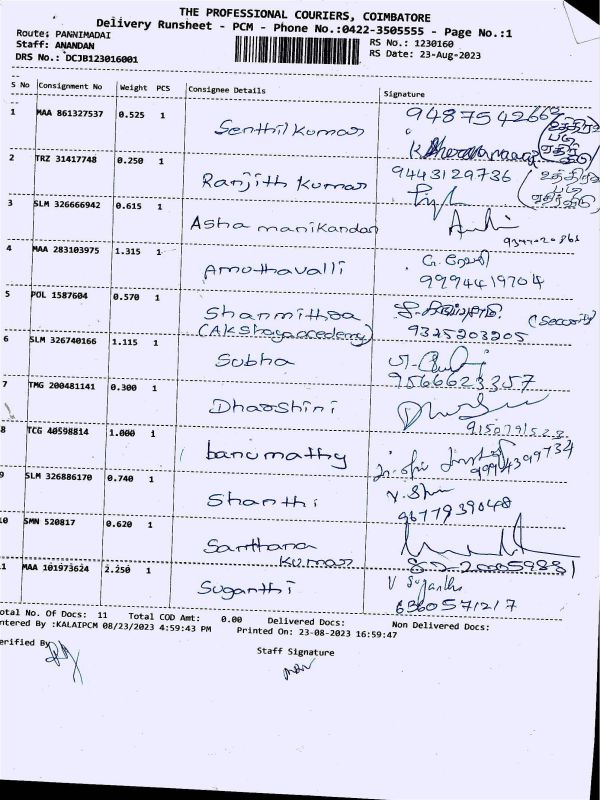 THE PROFESSIONAL COURIERS, COIMBATORE
Delivery Runsheet - PCM - Phone No.:0422-3505555 - Page No.:1
Route: PANNIMADAI
RS No.: 1230160
Staff: ANANDAN
RS Date: 23-Aug-2023
DRS No.: DCJB123016001
S No Consignment No Weight PCS Consignee Details Signature
1 MAA 861327537 0.525 1 Senthil Kumar
2 TRZ 31417748 0.250 1 Ranjith Kumar 9443129736
3 SLM 326666942 0.615 1 Asha manikandan
4 MAA 283103975 1.315 1 Amuthavalli 9994419704
5 POL 1587604 0.570 1 Shanmithaa (Security)
(Akshaya accedemy) 9345203205
6 SLM 326740166 1.115 1 Subha
9566623357
7 TMG 200481141 0.300 1 Dharshini
8 TCG 40598814 1.000 1 banumathy 9994399734
9 SLM 326886170 0.740 1 Shanthi
9677939048
10 SMN 520817 0.620 1 Santhana
Kumar
11 MAA 101973624 2.250 1 Suganthi V Suganthi
6360571217
Total No. Of Docs: 11 Total COD Amt: 0.00 Delivered Docs: Non Delivered Docs:
Entered By :KALAIPCM 08/23/2023 4:59:43 PM Printed On: 23-08-2023 16:59:47
Verified By
Staff Signature